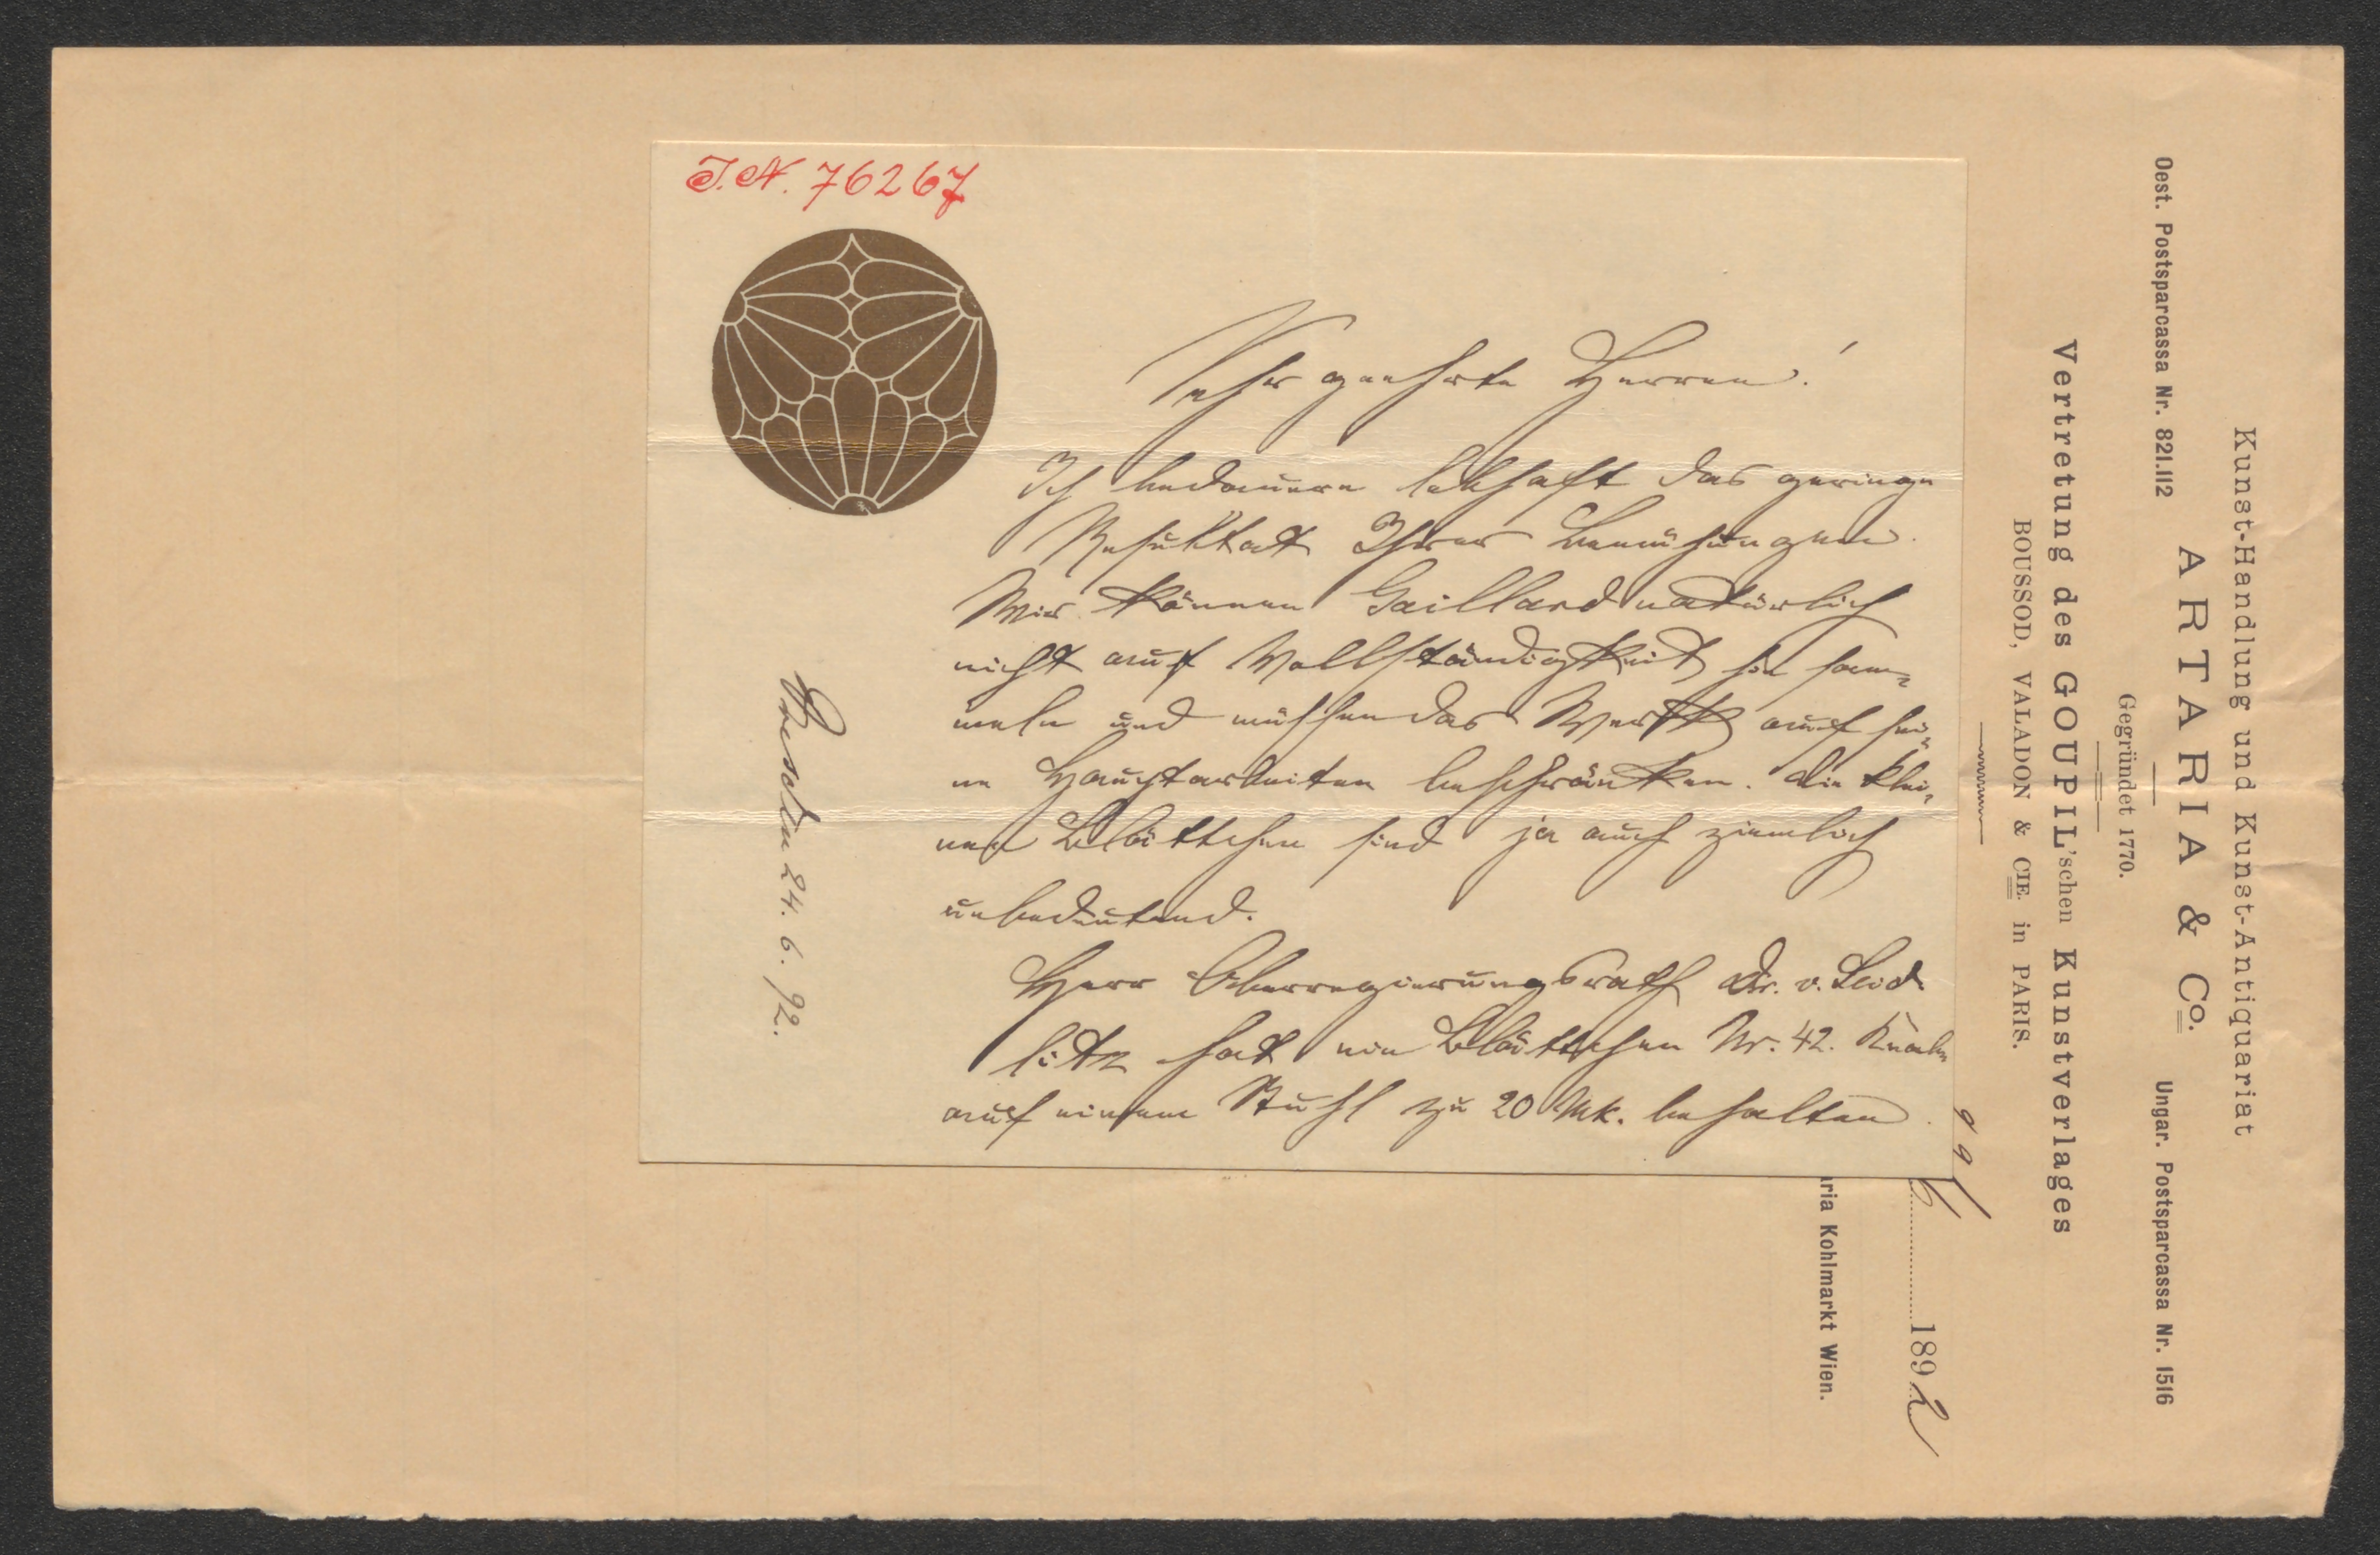 J.N. 76267
Sehr geehrte Herren!
Ich bedauere lebhaft das geringe
Resultat Ihrer Bemühungen.
Wir können Gaillard natürlich
nicht auf Vollständigkeit hin sam-
meln und müssen das Werk auf sei-
ne Hauptarbeiten beschränken. Die klei-
nen Blättchen sind ja auch ziemlich
unbedeutend.
Herr Oberregierungsrath Dr. v. Seid-
litz hat ein Blättchen Nr. 42. Knabe
auf einem Stuhl zu 20 Mk. behalten
Dresden 24. 6. 92.
Kunst-Handlung und Kunst-Antiquariat
Oest. Postsparcassa Nr. 821.112 ARTARIA & Co. Ungar. Postsparcassa Nr. 1516
Gegründet 1770.
Vertretung des GOUPIL'schen Kunstverlages
BOUSSOD, VALADON & CIE. in PARIS.
1892
ria Kohlmarkt Wien.